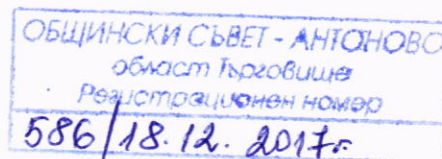 ОБЩИНСКИ СЪВЕТ - АНТОНОВО
област Търговище
Регистрационен номер
586/18.12.2017г.